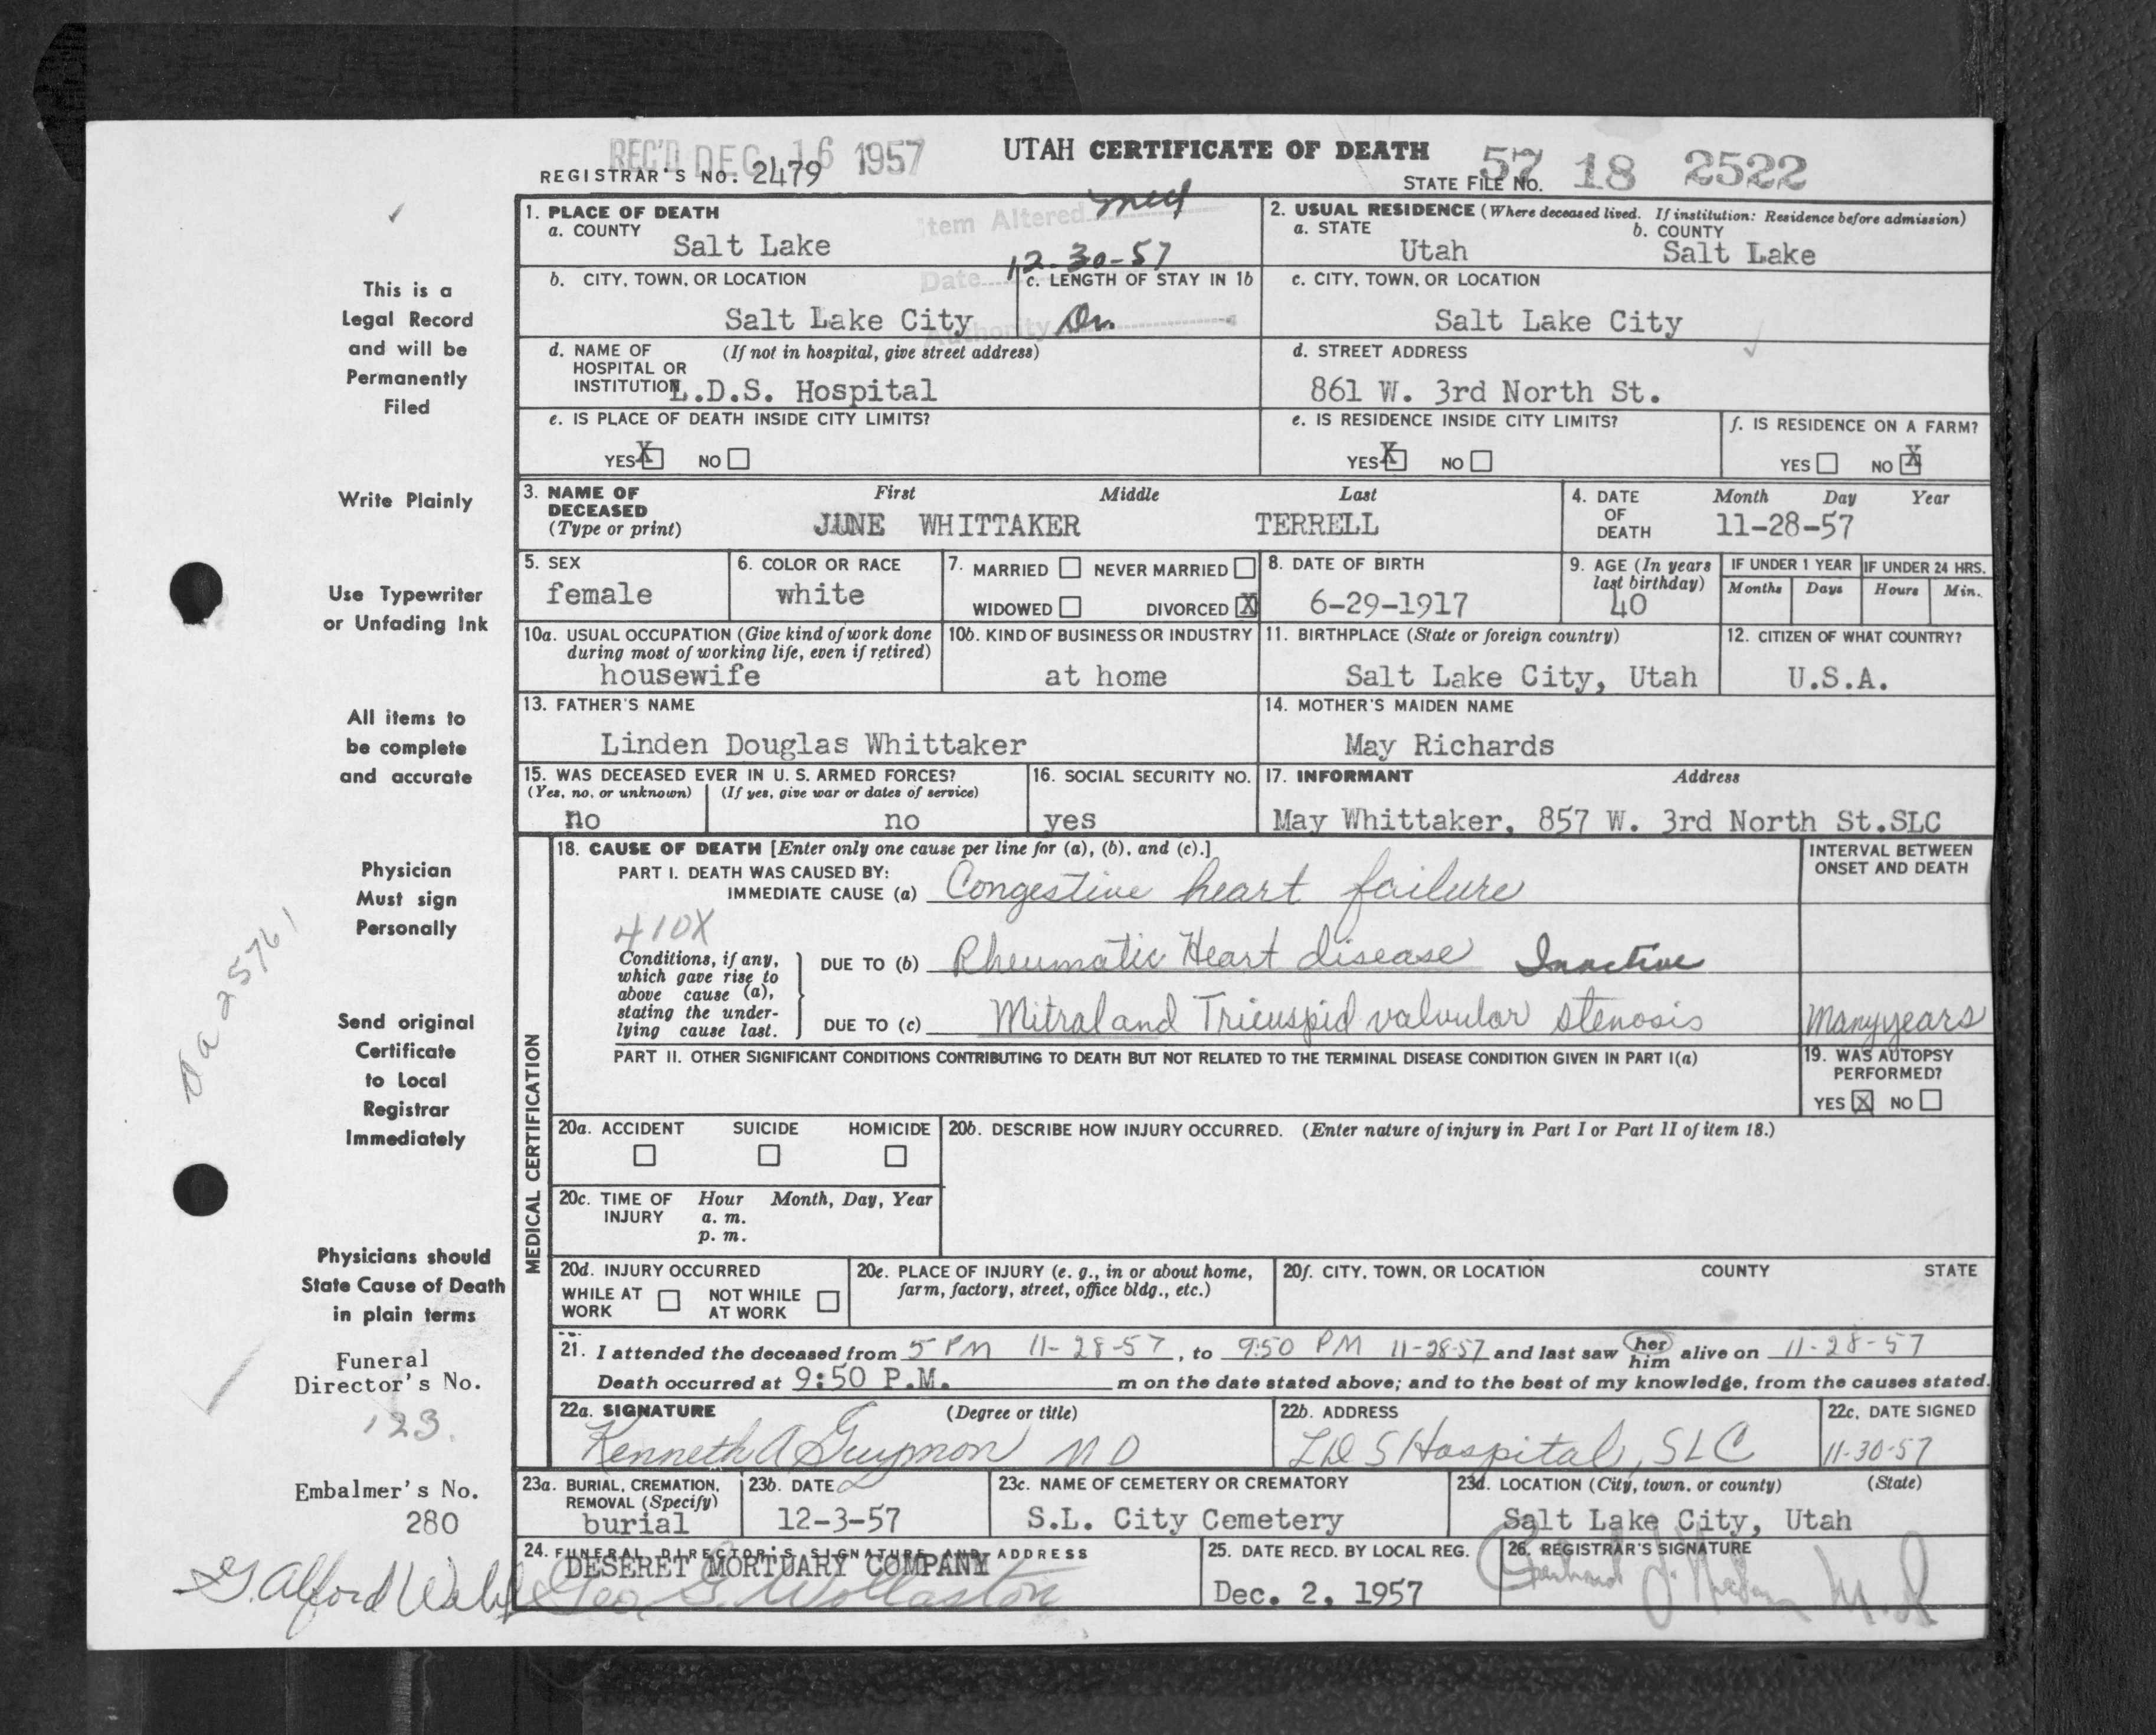 REC'D DEC 16 1957
UTAH CERTIFICATE OF DEATH
REGISTRAR'S NO. 2479
STATE FILE NO. 57 18 2522
Item Altered
Date 12-30-57
Authority
1. PLACE OF DEATH
a. COUNTY
Salt Lake
2. USUAL RESIDENCE (Where deceased lived. If institution: Residence before admission)
a. STATE b. COUNTY
Utah Salt Lake
b. CITY, TOWN, OR LOCATION
Salt Lake City
c. LENGTH OF STAY IN 1b
c. CITY, TOWN, OR LOCATION
Salt Lake City
d. NAME OF (If not in hospital, give street address)
HOSPITAL OR
INSTITUTION L.D.S. Hospital
d. STREET ADDRESS
861 W. 3rd North St.
e. IS PLACE OF DEATH INSIDE CITY LIMITS?
YES X NO
e. IS RESIDENCE INSIDE CITY LIMITS?
YES X NO
f. IS RESIDENCE ON A FARM?
YES NO X
3. NAME OF First Middle Last
DECEASED
(Type or print) JUNE WHITTAKER TERRELL
4. DATE Month Day Year
OF
DEATH 11-28-57
5. SEX
female
6. COLOR OR RACE
white
7. MARRIED NEVER MARRIED
WIDOWED DIVORCED X
8. DATE OF BIRTH
6-29-1917
9. AGE (In years
last birthday)
40
IF UNDER 1 YEAR
Months Days
IF UNDER 24 HRS.
Hours Min.
10a. USUAL OCCUPATION (Give kind of work done
during most of working life, even if retired)
housewife
10b. KIND OF BUSINESS OR INDUSTRY
at home
11. BIRTHPLACE (State or foreign country)
Salt Lake City, Utah
12. CITIZEN OF WHAT COUNTRY?
U.S.A.
13. FATHER'S NAME
Linden Douglas Whittaker
14. MOTHER'S MAIDEN NAME
May Richards
15. WAS DECEASED EVER IN U. S. ARMED FORCES?
(Yes, no, or unknown) (If yes, give war or dates of service)
no no
16. SOCIAL SECURITY NO.
yes
17. INFORMANT Address
May Whittaker, 857 W. 3rd North St.SLC
MEDICAL CERTIFICATION
18. CAUSE OF DEATH [Enter only one cause per line for (a), (b), and (c).]
INTERVAL BETWEEN
ONSET AND DEATH
PART I. DEATH WAS CAUSED BY:
IMMEDIATE CAUSE (a) Congestive heart failure
410X
Conditions, if any,
which gave rise to
above cause (a),
stating the under-
lying cause last.
DUE TO (b) Rheumatic Heart disease Inactive
DUE TO (c) Mitral and Tricuspid valvular stenosis Many years
PART II. OTHER SIGNIFICANT CONDITIONS CONTRIBUTING TO DEATH BUT NOT RELATED TO THE TERMINAL DISEASE CONDITION GIVEN IN PART I(a)
19. WAS AUTOPSY
PERFORMED?
YES X NO
20a. ACCIDENT SUICIDE HOMICIDE
20b. DESCRIBE HOW INJURY OCCURRED. (Enter nature of injury in Part I or Part II of item 18.)
20c. TIME OF Hour Month, Day, Year
INJURY a. m.
p. m.
20d. INJURY OCCURRED
WHILE AT NOT WHILE
WORK AT WORK
20e. PLACE OF INJURY (e. g., in or about home,
farm, factory, street, office bldg., etc.)
20f. CITY, TOWN, OR LOCATION COUNTY STATE
21. I attended the deceased from 5 PM 11-28-57, to 9:50 PM 11-28-57 and last saw her him alive on 11-28-57
Death occurred at 9:50 P.M. m on the date stated above; and to the best of my knowledge, from the causes stated.
22a. SIGNATURE (Degree or title)
Kenneth A Guymon M D
22b. ADDRESS
LDS Hospital, SLC
22c. DATE SIGNED
11-30-57
23a. BURIAL, CREMATION,
REMOVAL (Specify)
burial
23b. DATE
12-3-57
23c. NAME OF CEMETERY OR CREMATORY
S.L. City Cemetery
23d. LOCATION (City, town, or county) (State)
Salt Lake City, Utah
24. FUNERAL DIRECTOR'S SIGNATURE AND ADDRESS
DESERET MORTUARY COMPANY
Geo G. Wollaston
25. DATE RECD. BY LOCAL REG.
Dec. 2, 1957
26. REGISTRAR'S SIGNATURE
This is a
Legal Record
and will be
Permanently
Filed
Write Plainly
Use Typewriter
or Unfading Ink
All items to
be complete
and accurate
Physician
Must sign
Personally
Send original
Certificate
to Local
Registrar
Immediately
Physicians should
State Cause of Death
in plain terms
Funeral
Director's No.
123.
Embalmer's No.
280
G. Alford